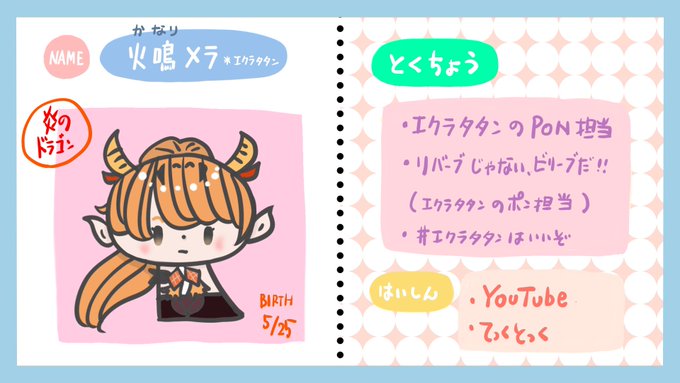 NAME
かなり
火鳴メラ *エクラタタン
炎の
ドラゴン
BIRTH
5/25
とくちょう
・エクラタタンのPON担当
・リバーブじゃない、ビリーブだ!!
(エクラタタンのポン担当)
・#エクラタタンはいいぞ
はいしん
・YouTube
・てぃくとっく